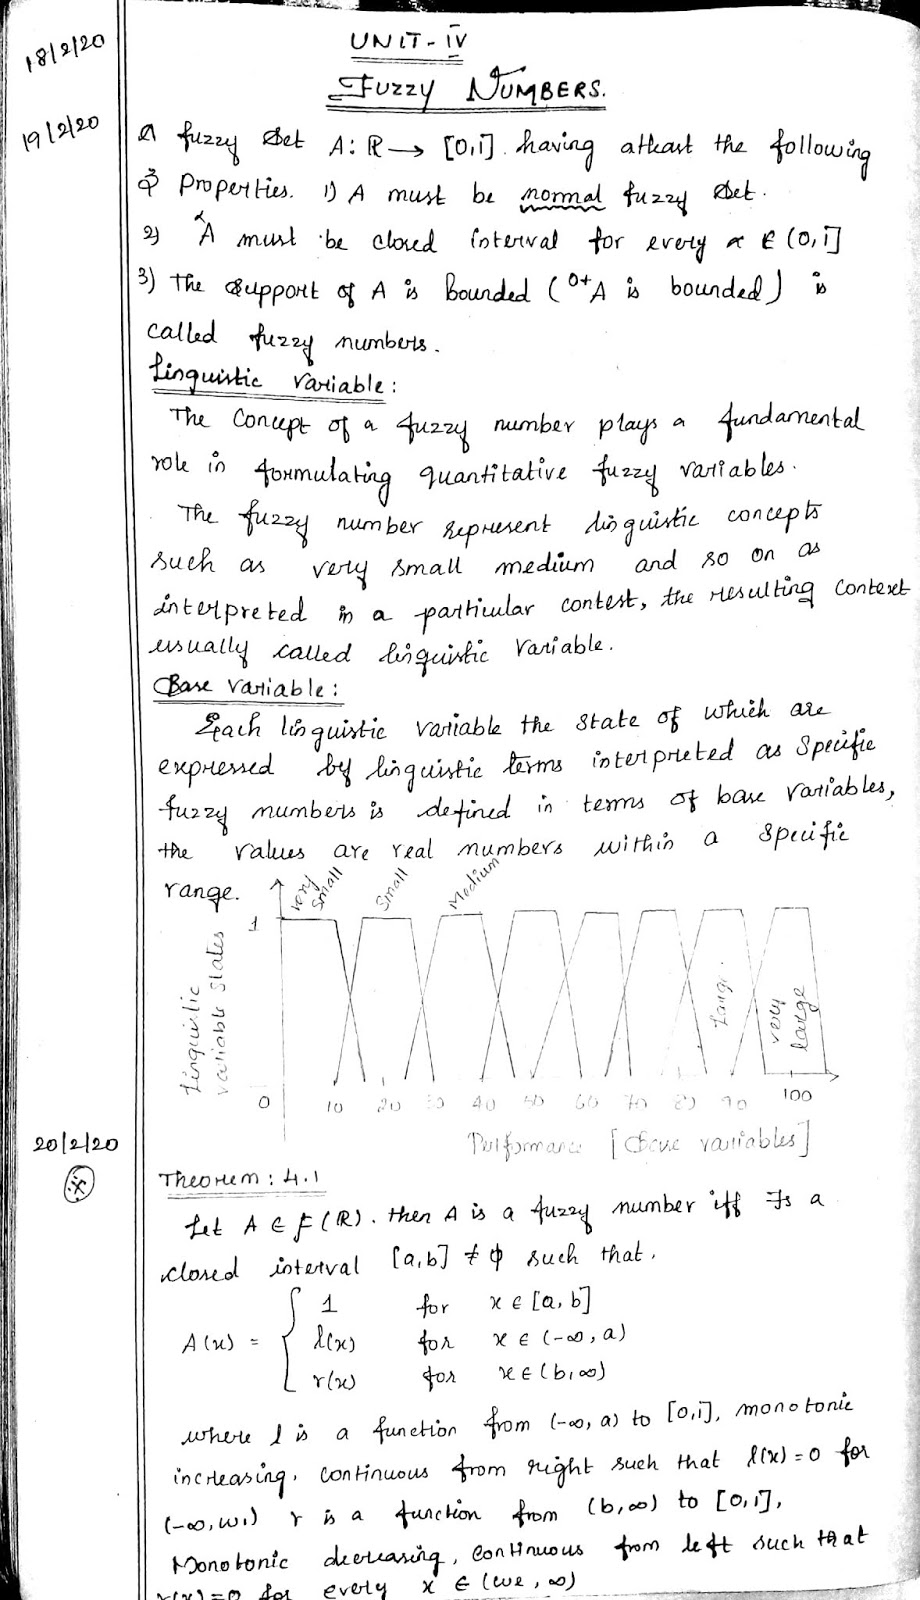 18/2/20
UNIT - IV
FUZZY NUMBERS.
19/2/20
A fuzzy Set A: ℝ → [0,1]. having atleast the following
3 Properties. 1) A must be normal fuzzy Set.
2) ᵅA must be closed interval for every α ∈ (0,1]
3) The Support of A is Bounded (⁰⁺A is bounded) is
called fuzzy numbers.
Linguistic Variable:
The Concept of a fuzzy number plays a fundamental
role in formulating quantitative fuzzy variables.
The fuzzy number represent linguistic concepts
such as very small medium and so on as
interpreted in a particular contest, the resulting context
usually called linguistic Variable.
Base Variable:
Each linguistic variable the state of which are
expressed by linguistic terms interpreted as Specific
fuzzy numbers is defined in terms of base variables,
the values are real numbers within a specific
range.
very small
Small
Medium
Large
very large
1
Linguistic variable States
0 10 20 30 40 50 60 70 80 90 100
Performance [Base variables]
20/2/20
Theorem: 4.1
Let A ∈ F(ℝ). then A is a fuzzy number iff Ǝs a
closed interval [a,b] ≠ ϕ such that.
A(x) = { 1 for x ∈ [a, b]
l(x) for x ∈ (-∞, a)
r(x) for x ∈ (b, ∞)
where l is a function from (-∞, a) to [0,1], monotonic
increasing, continuous from right such that l(x) = 0 for
(-∞, w₁) r is a function from (b, ∞) to [0,1],
Monotonic decreasing, continuous from left such that
r(x) = 0 for every x ∈ (w2, ∞)